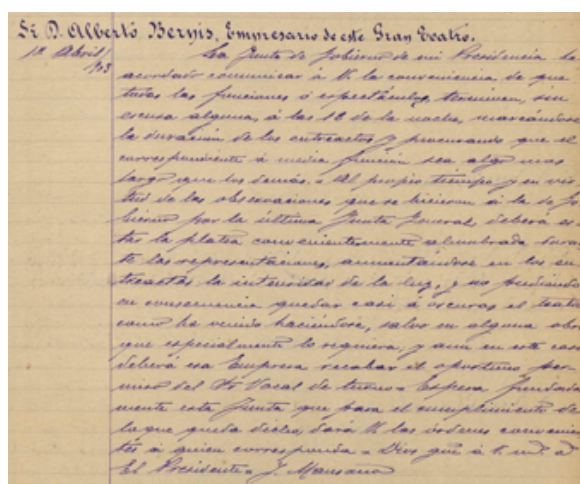 Sr. D. Alberto Bernis, Empresario de este Gran Teatro.
1º Abril/903
La Junta de Gobierno de mi Presidencia ha
acordado comunicar á V. la conveniencia de que
todas las funciones ó espectáculos, terminen, sin
escusa alguna, á las 12 de la noche, marcándose
la duración de los entreactos y procurando que el
correspondiente á media función sea algo mas
largo que los demás. = Al propio tiempo, y en vir
tud de las observaciones que se hicieron á la de Go
bierno por la última Junta General, deberá es
tar la platea convenientemente alumbrada duran
te las representaciones, aumentándose en los en
treactos la intensidad de la luz, y no pudiendo
en consecuencia quedar casi á oscuras el teatro
como ha venido haciéndose, salvo en alguna obra
que especialmente lo requiera, y aun en este caso
deberá esa Empresa recabar el oportuno per
miso del Sr Vocal de turno = Espera fundada
mente esta Junta que para el cumplimiento de
lo que queda dicho, dará V. las órdenes convenien
tes á quien corresponda = Dios gue á V. mˢ aˢ
El Presidente = J.